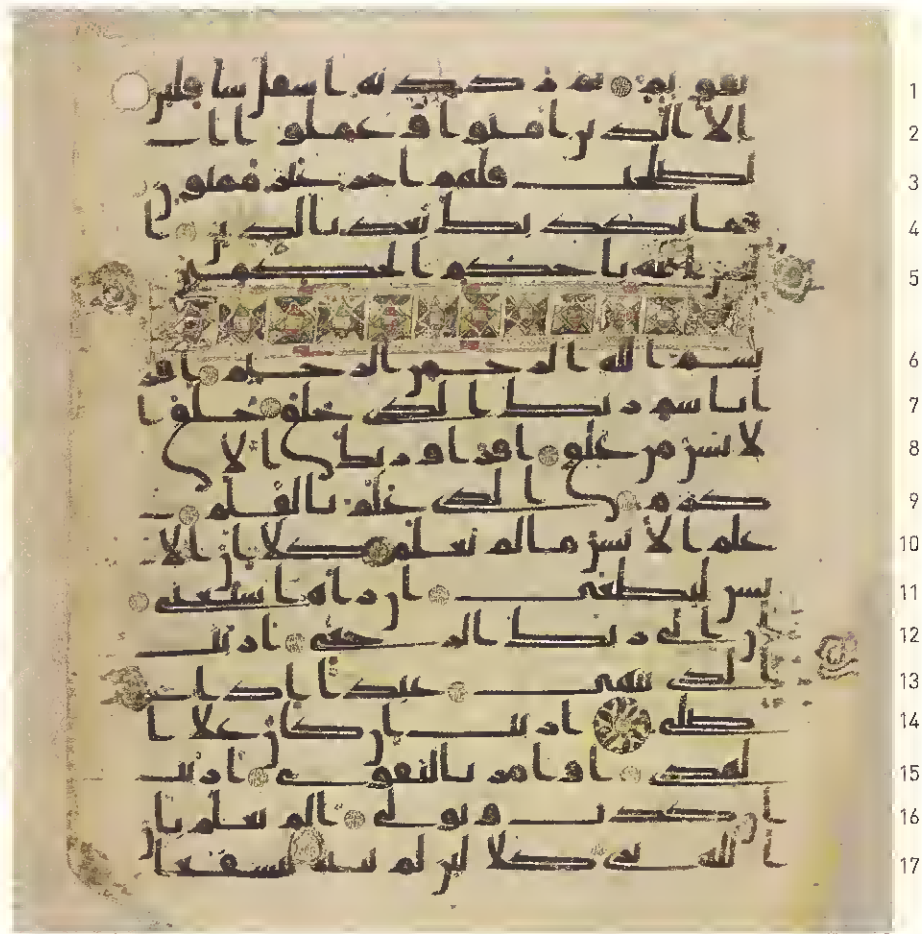 تقويم ثم رددنه اسفل سافلين 1
الا الذين امنوا وعملوا ا 2
لصلحت فلهم اجر غير ممنون 3
فما يكذبك بعد بالدين ا 4
ليس الله باحكم الحكمين 5
بسم الله الرحمن الرحيم اقر 6
ا باسم ربك الذي خلق خلق ا 7
لانسن من علق اقرا وربك الا 8
كرم الذي علم بالقلم 9
علم الانسن ما لم يعلم كلا ان الا 10
نسن ليطغى ان راه استغنى 11
ان الى ربك الرجعى اريت 12
الذي ينهى عبدا اذا 13
صلى اريت ان كان على ا 14
لهدى او امر بالتقوى اريت 15
ان كذب وتولى الم يعلم بان 16
الله يرى كلا لئن لم ينته لنسفعا 17